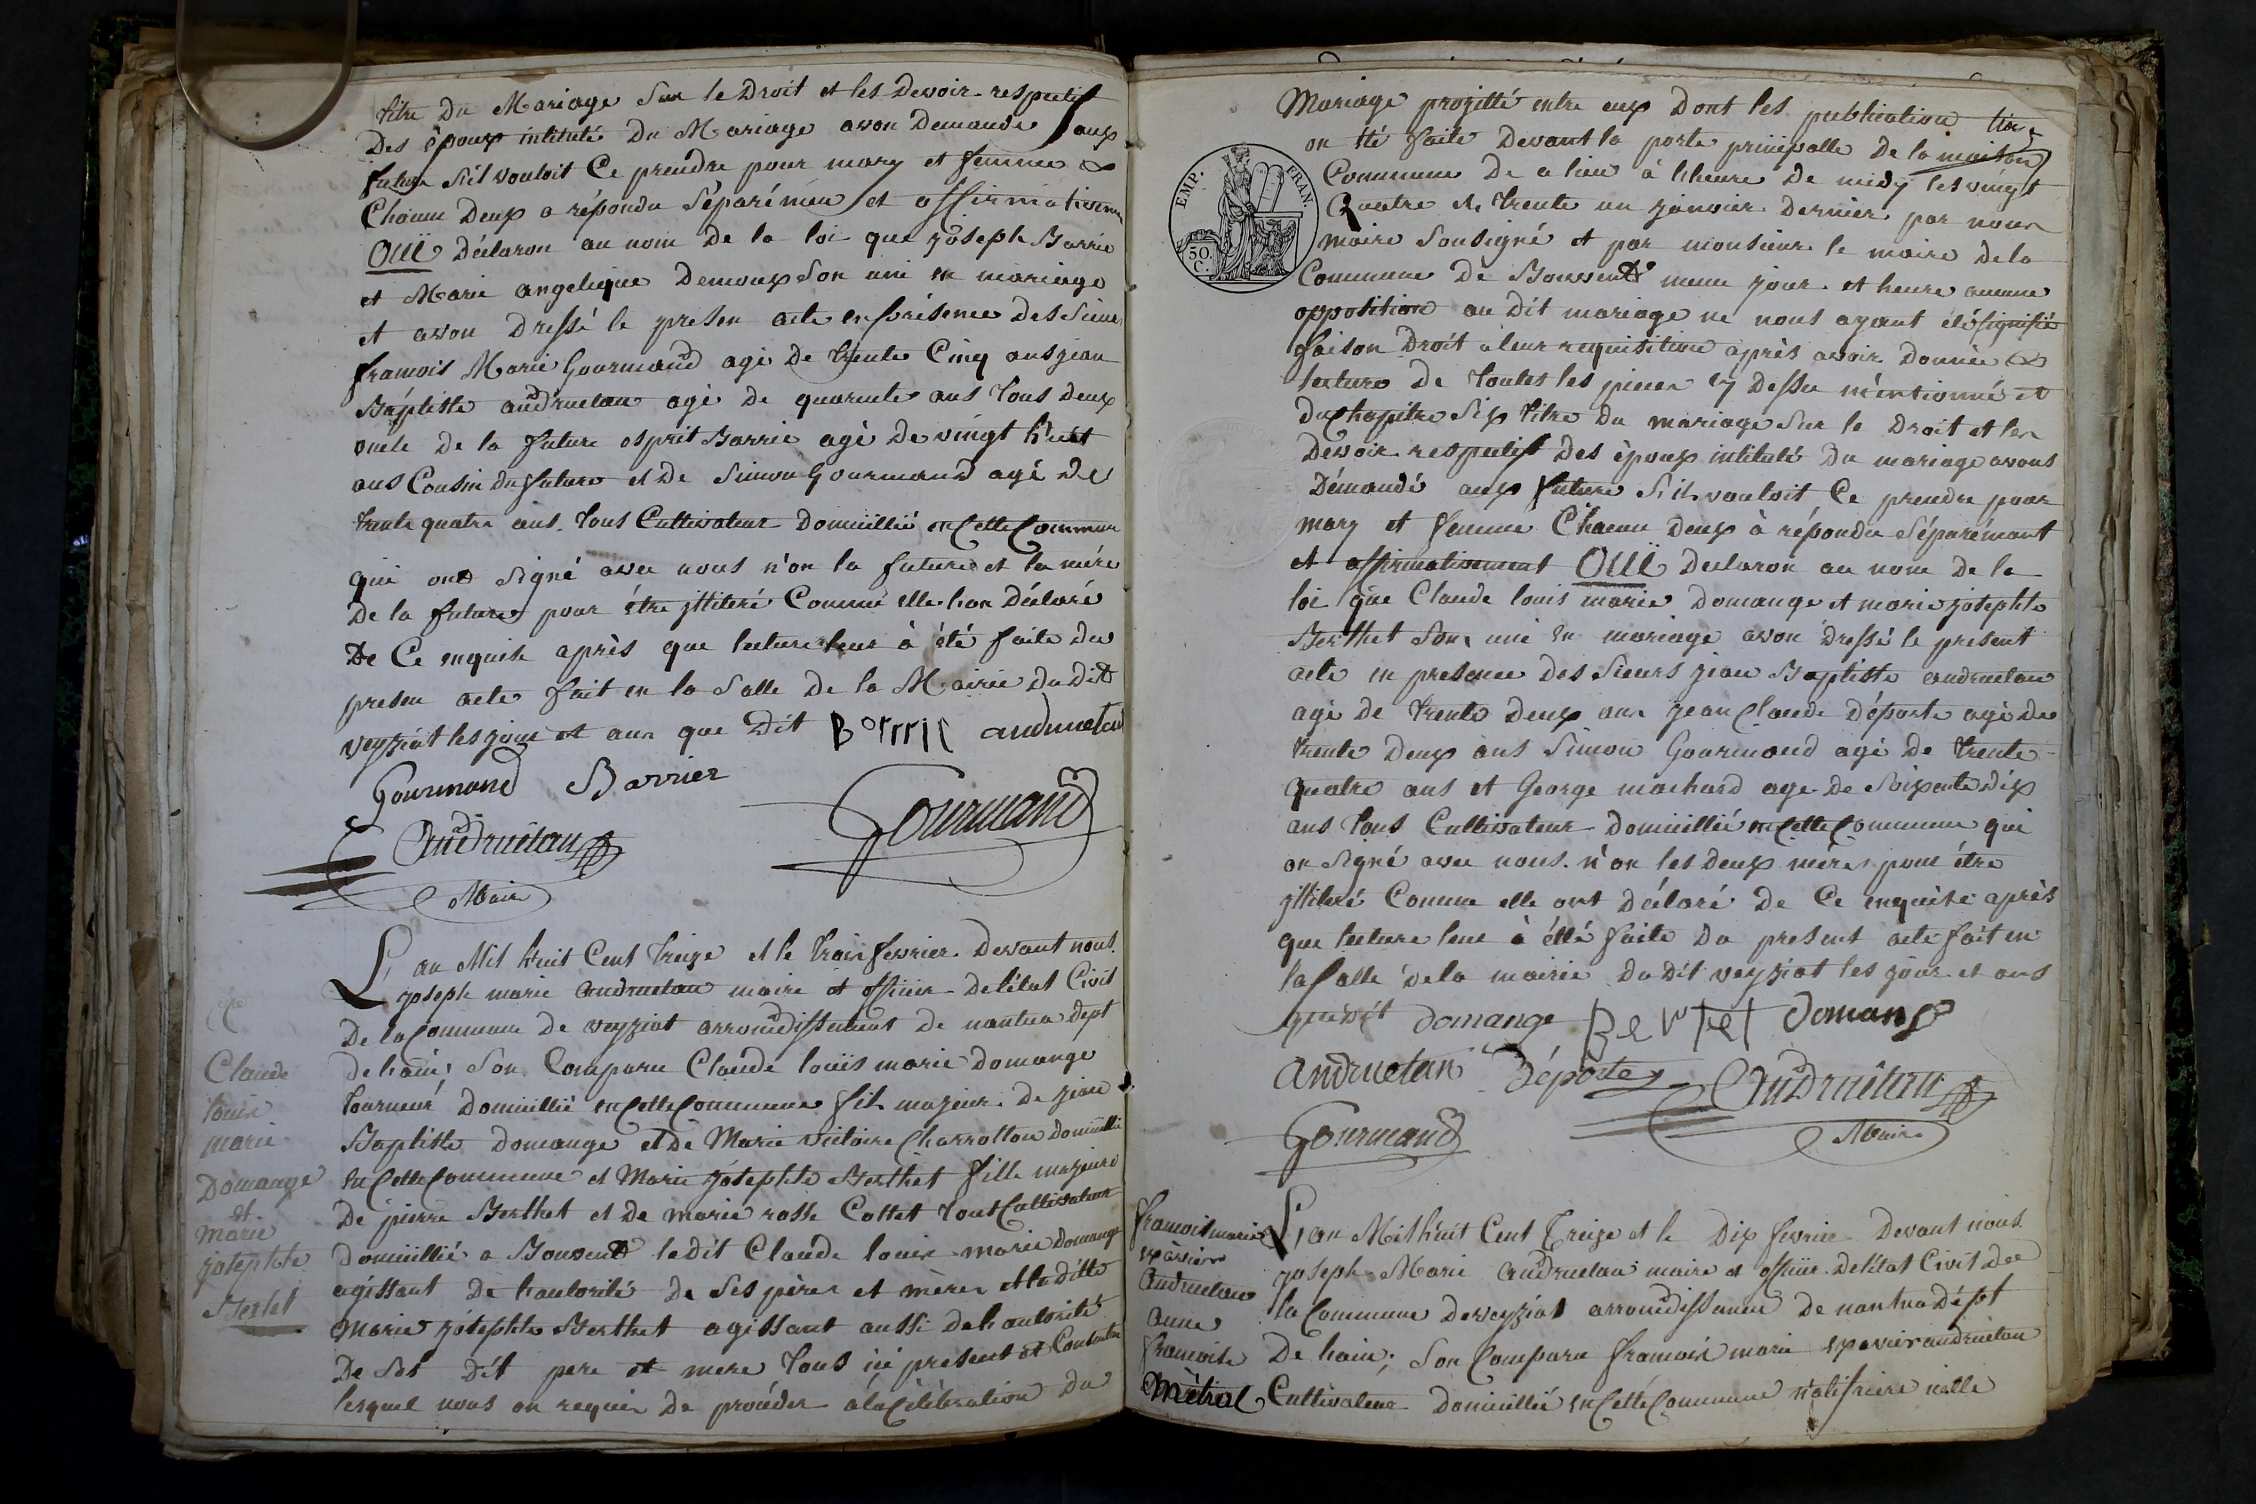 titre Du Mariage Sur le Droit et les Devoir respectif
Des époux intitulé Du Mariage avon Demandé aux
future S'il vouloit Ce prendre pour mary et femme
Chacun Deux a répondu Séparémen et affirmativemen
OUÏ Déclaron au nom De la loi que joseph Barrié
et Marie angelique Demoux Son uni en mariage
et avon Dressé le presen acte en présence Des Sieurs
francois Marie Gourmand agé De trente Cinq ans jean
Baptiste andruetan agé de quarente ans tous deux
oncle De la future esprit Barrié agé De vingt huit
ans Cousin du future et De Simon Gourmand agé De
trente quatre ans. tous Cultivateur Domicillié en Cette Commune
qui ont Signé avec nous n'on la future et la mére
De la future pour être illiteré Comme elle l'on Déclaré
De Ce enquise aprés que lecture leur à été faite du
presen acte fait en la Salle De la Mairie Du Dit
veyziat les jour et an que Dit andruetan
Gourmand Barrier
Andruétan Gourmand
Maire
L'an Mil huit Cent treize et le trois fevrier Devant nous
joseph marie andruetan maire et officier De l'état Civil
De la Commune De veyziat arrondissement De nantua dépt
de l'ain; Son Comparu Claude louis marie Domange
tourneur Domicillié en Cette Commune fils majeur De jean
Baptiste Domange et De Marie victoire Charrotton Domicillié
en Cette Commune et Marie josephte Berthet fille majeure
De pierre Berthet et De marie rosse Cottet tout Cultivateur
Domicillié a Bouvent le dit Claude louis marie Domange
agissant De l'autorité De Ses péres et méres et la ditte
Marie josephte Berthet agissant aussi De l'autorité
De Ses Dit pere et mere tous ici present et Consentan
lesquel nous on requis De procéder à la Célébration Du
Claude
louis
marie
Domange
et
Marie
josephte
Bertet
Mariage projetté entre eux Dont les publication
on été faite Devant la porte principalle De la maison
Commune De ce lieu à l'heure De midy les vingt
Quatre et trente un janvier Dernier par nous
EMP. FRAN.
50.
C.
maire Sousigné et par monsieur le maire De la
Commune De Bouvent meme jour et heure aucune
opposition au Dit mariage ne nous ayant été signifié
faison Droit à leur requisition après avoir Donnée
lecture De toutes les pieces cy Dessu méntionné et
Du Chapitre Six titre Du mariage Sur le Droit et les
Devoir respectif Des époux intitulé Du mariage avons
Démandé aux future S'ils vouloit Ce prendre pour
mary et femme Chacun Deux à répondu Séparémant
et affirmativement OUÏ Declaron au nom De la
loi que Claude louis marie Domange et marie josephte
Berthet Son uni en mariage avon Dressé le present
acte en presence Des Sieurs jean Baptiste andruetan
agé de trente Deux ans jean Claude Déporte agé De
trente Deux ans Simon Gourmand agé De trente
quatre ans et George machard age De Soixente Dix
ans tous Cultivateur Domicillié en Cette Commune qui
on Signé avec nous. n'on les Deux mères pour être
illiteré Comme elle ont Déclaré De Ce enquise après
que lecture leur à été faite Du present acte fait en
la Salle De la mairie Du Dit veyziat les jour et ans
que Dit Domange Bertet Domange
Andruetan Déporte Andruétan
Gourmand Maire
francois marie
xavier
Andruetan
Anne
francoise
Métral
L'an Mil huit Cent Treize et le Dix fevrier Devant nous
joseph Marie Andruetan maire et officier De l'état Civil De
la Commune De veyziat arrondissemen De nantua Dépt
De l'ain; Son Comparu francois marie xavier andruetan
Cultivateur Domicillié en Cette Commune